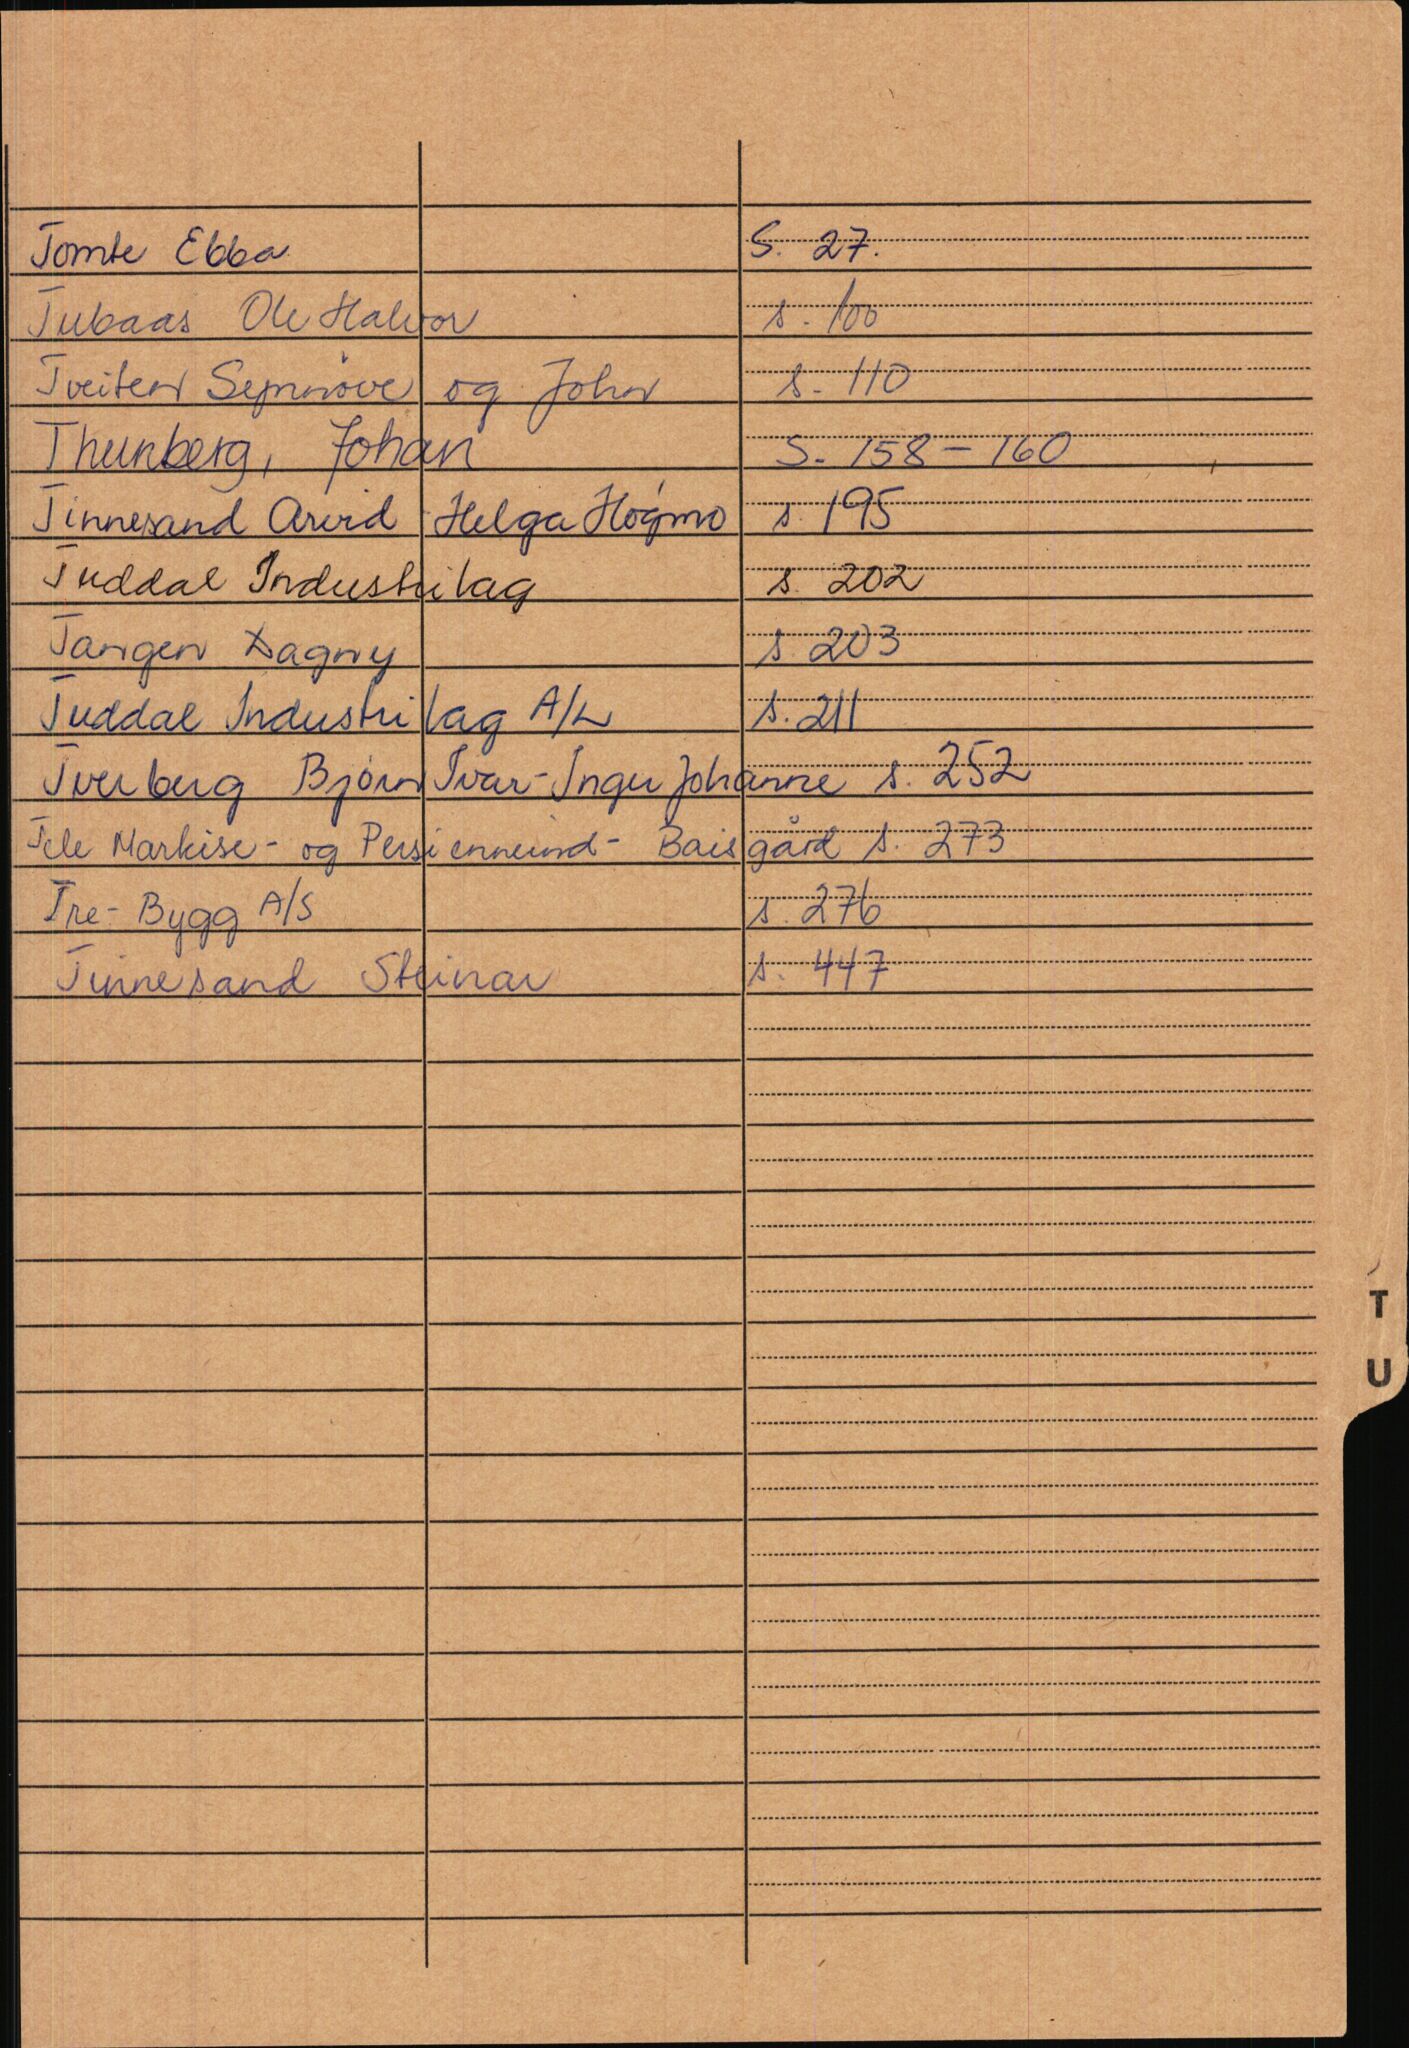 Tomte Ebba S. 27.
Tubaas Ole Halvor s. 100
Tveiten Synnöve og John s. 110
Thunberg, Johan S. 158 - 160
Tinnesand Arvid Helga Høgmo s. 195
Tuddal Industrilag s. 202
Tangen Dagny s. 203
Tuddal Industrilag A/L s. 211
Tverberg Bjørn Ivar - Inger Johanne s. 252
Tele Markise- og Persienneind- Baisgård s. 273
Tre-Bygg A/S s. 276
Tinnesand Steinar s. 447
T
U